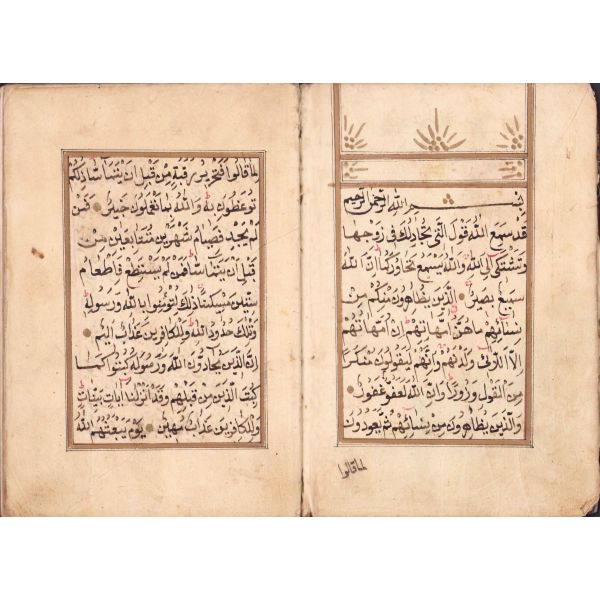 بِسْمِ اللهِ الرَّحْمٰنِ الرَّحِيمِ
قَدْ سَمِعَ اللهُ قَوْلَ الَّتِي تُجَادِلُكَ فِي زَوْجِهَا
وَتَشْتَكِي اِلَى اللهِ وَاللهُ يَسْمَعُ تَحَاوُرَكُمَا اِنَّ اللهَ
سَمِيعٌ بَصِيرٌ الَّذِينَ يُظَاهِرُونَ مِنْكُمْ مِنْ
نِسَائِهِمْ مَا هُنَّ اُمَّهَاتِهِمْ اِنْ اُمَّهَاتُهُمْ
اِلَّا اللَّائِي وَلَدْنَهُمْ وَاِنَّهُمْ لَيَقُولُونَ مُنْكَرًا
مِنَ الْقَوْلِ وَزُورًا وَاِنَّ اللهَ لَعَفُوٌّ غَفُورٌ
وَالَّذِينَ يُظَاهِرُونَ مِنْ نِسَائِهِمْ ثُمَّ يَعُودُونَ
لما قالوا
لِمَا قَالُوا فَتَحْرِيرُ رَقَبَةٍ مِنْ قَبْلِ اَنْ يَتَمَاسَّا ذٰلِكُمْ
تُوعَظُونَ بِهِ وَاللهُ بِمَا تَعْمَلُونَ خَبِيرٌ فَمَنْ
لَمْ يَجِدْ فَصِيَامُ شَهْرَيْنِ مُتَتَابِعَيْنِ مِنْ
قَبْلِ اَنْ يَتَمَاسَّا فَمَنْ لَمْ يَسْتَطِعْ فَاِطْعَامُ
سِتِّينَ مِسْكِينًا ذٰلِكَ لِتُؤْمِنُوا بِاللهِ وَرَسُولِهِ
وَتِلْكَ حُدُودُ اللهِ وَلِلْكَافِرِينَ عَذَابٌ اَلِيمٌ
اِنَّ الَّذِينَ يُحَادُّونَ اللهَ وَرَسُولَهُ كُبِتُوا كَمَا
كُبِتَ الَّذِينَ مِنْ قَبْلِهِمْ وَقَدْ اَنْزَلْنَا اٰيَاتٍ بَيِّنَاتٍ
وَلِلْكَافِرِينَ عَذَابٌ مُهِينٌ يَوْمَ يَبْعَثُهُمُ اللهُ